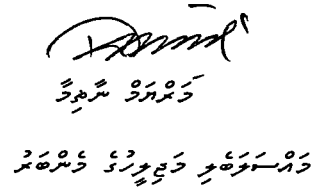 މަރްޔަމް ނާޡިމާ
މައްސަލަބެލި މަޖިލީހުގެ މެންބަރު